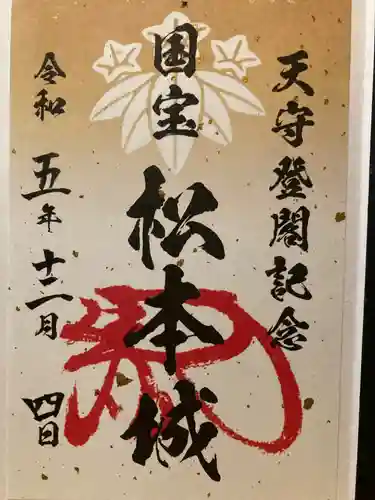 天守登閣記念
国宝
松本城
令和五年十二月四日